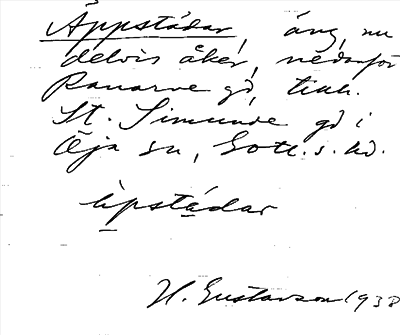 Äppstädar, äng, nu
delvis åker, nedanför
Ranarve gd, tillh.
St. Simunde gd i
Öja sn, Gotl. s. hd.
äpstadar
H. Gustavson 1938